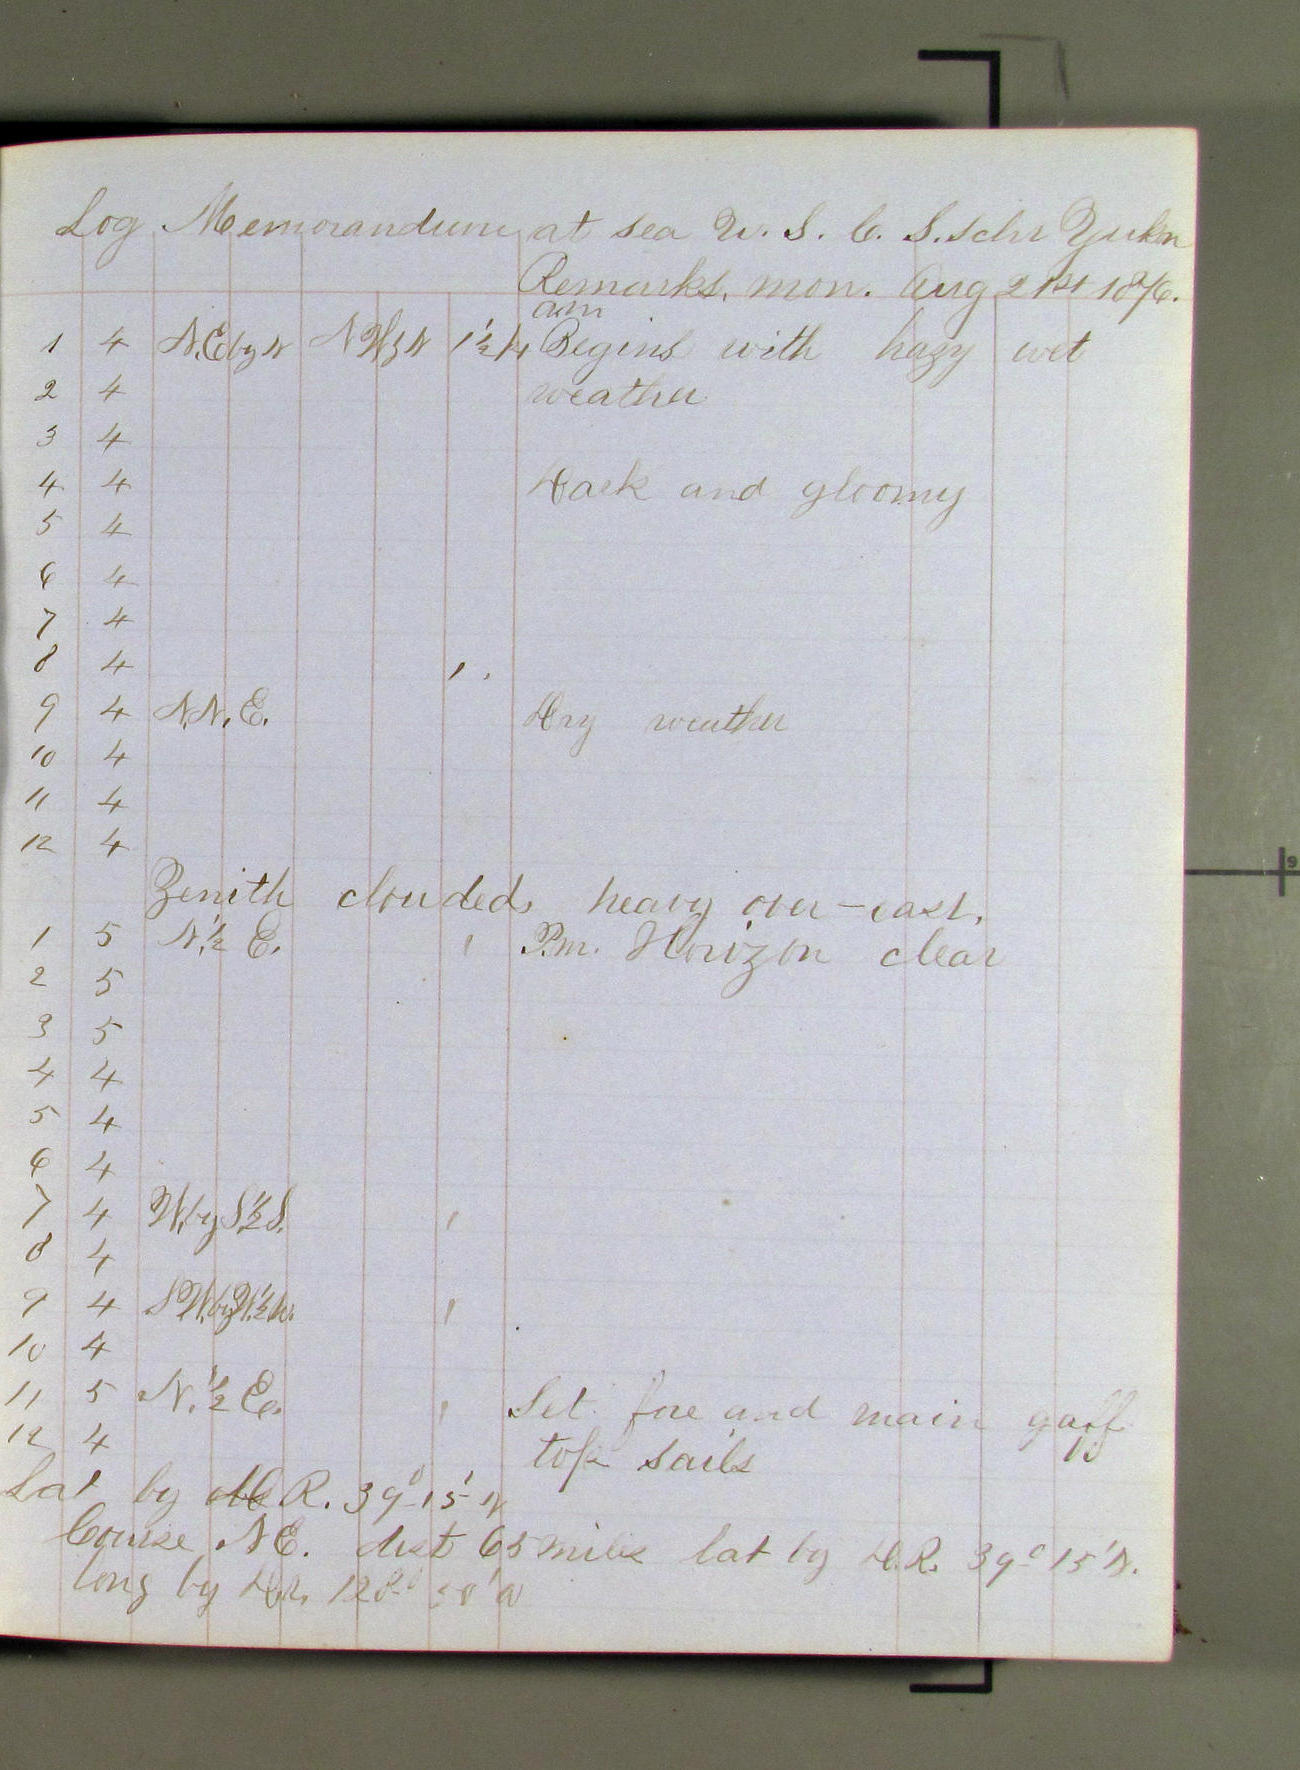 Log Memorandum at sea U. S. C. S. schr Yukon
Remarks, mon. Aug 21st 1876.
am
1 4 N.E by N N W 1½ Begins with hazy wet
2 4 weather
3 4
4 4 Dark and gloomy
5 4
6 4
7 4
8 4 "
9 4 N.N.E. Dry weather
10 4
11 4
12 4
Zenith clouded, heavy over-cast.
1 5 N.½ E. " P.m. Horizon clear
2 5
3 5
4 4
5 4
6 4
7 4 W. by S.½ S. "
8 4
9 4 S W. by W.½ W. "
10 4
11 5 N.½ E. " Set fore and main gaff
12 4 top sails
Lat by D R. 39° 15' N
Course N E. dist 65 miles lat by D.R. 39° 15' N.
long by D.R. 128°
9